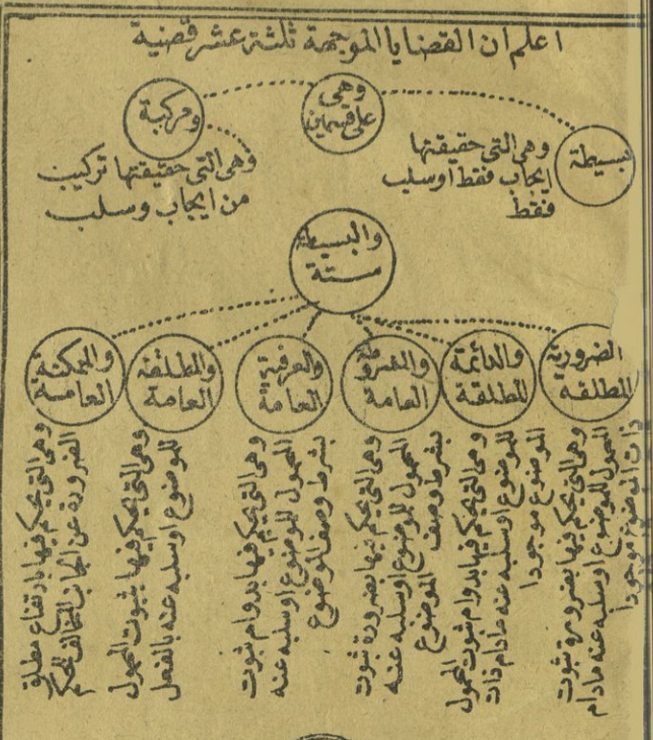 اعلم ان القضايا الموجهة ثلثة عشر قضية
وهى
على قسمين
بسيطة
وهى التى حقيقتها
ايجاب فقط او سلب
فقط
ومركبة
وهى التى حقيقتها تركيب
من ايجاب وسلب
والبسيطة
ستة
الضرورية
المطلقة
وهى التى يحكم فيها بضرورة ثبوت
المحمول للموضوع او سلبه عنه مادام
ذات الموضوع موجودا
والدائمة
المطلقة
وهى التى يحكم فيها بدوام ثبوت المحمول
للموضوع او سلبه عنه مادام ذات
الموضوع موجودا
والمشروطة
العامة
وهى التى يحكم فيها بضرورة ثبوت
المحمول للموضوع او سلبه عنه
بشرط وصف الموضوع
والعرفية
العامة
وهى التى يحكم فيها بدوام ثبوت
المحمول للموضوع او سلبه عنه
بشرط وصف الموضوع
والمطلقة
العامة
وهى التى يحكم فيها بثبوت المحمول
للموضوع او سلبه عنه بالفعل
والممكنة
العامة
وهى التى يحكم فيها بارتفاع مطلق
الضرورة عن الجانب المخالف للحكم